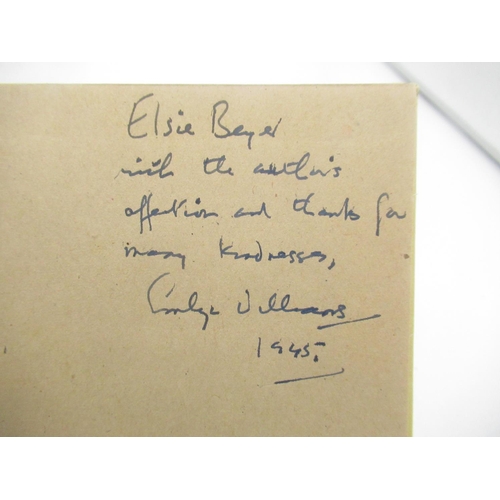 Elsie Beyer
with the author's
affection and thanks for
many kindnesses,
Emlyn Williams
1945.